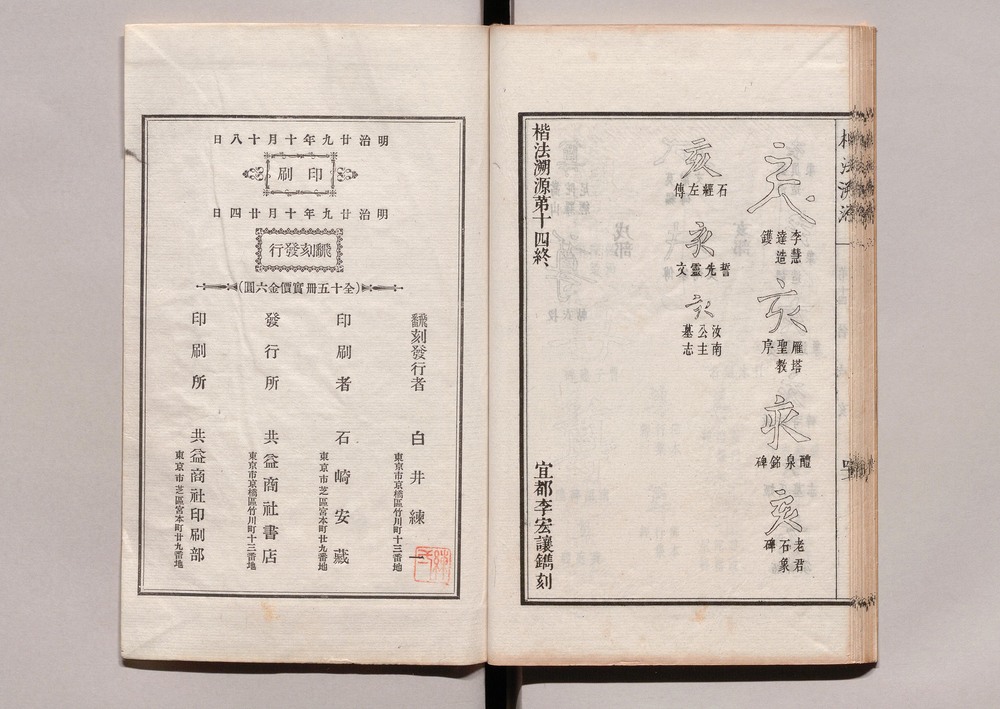 亥
李慧
達造
鑊
亥
雁塔
聖教
序
亥
醴泉銘碑
亥
老君
石象
碑
亥
石經左傳
亥
誓先靈文
亥
汝南
公主
墓志
楷法溯源第十四終
宜都李宏讓鐫刻
楷法溯源
明治廿九年十月十八日
印刷
明治廿九年十月廿四日
飜刻發行
(全十五冊實價金六圓)
飜刻發行者
白井練一
東京市京橋區竹川町十三番地
印刷者
石崎安藏
東京市芝區宮本町廿九番地
發行所
共益商社書店
東京市京橋區竹川町十三番地
印刷所
共益商社印刷部
東京市芝區宮本町廿九番地